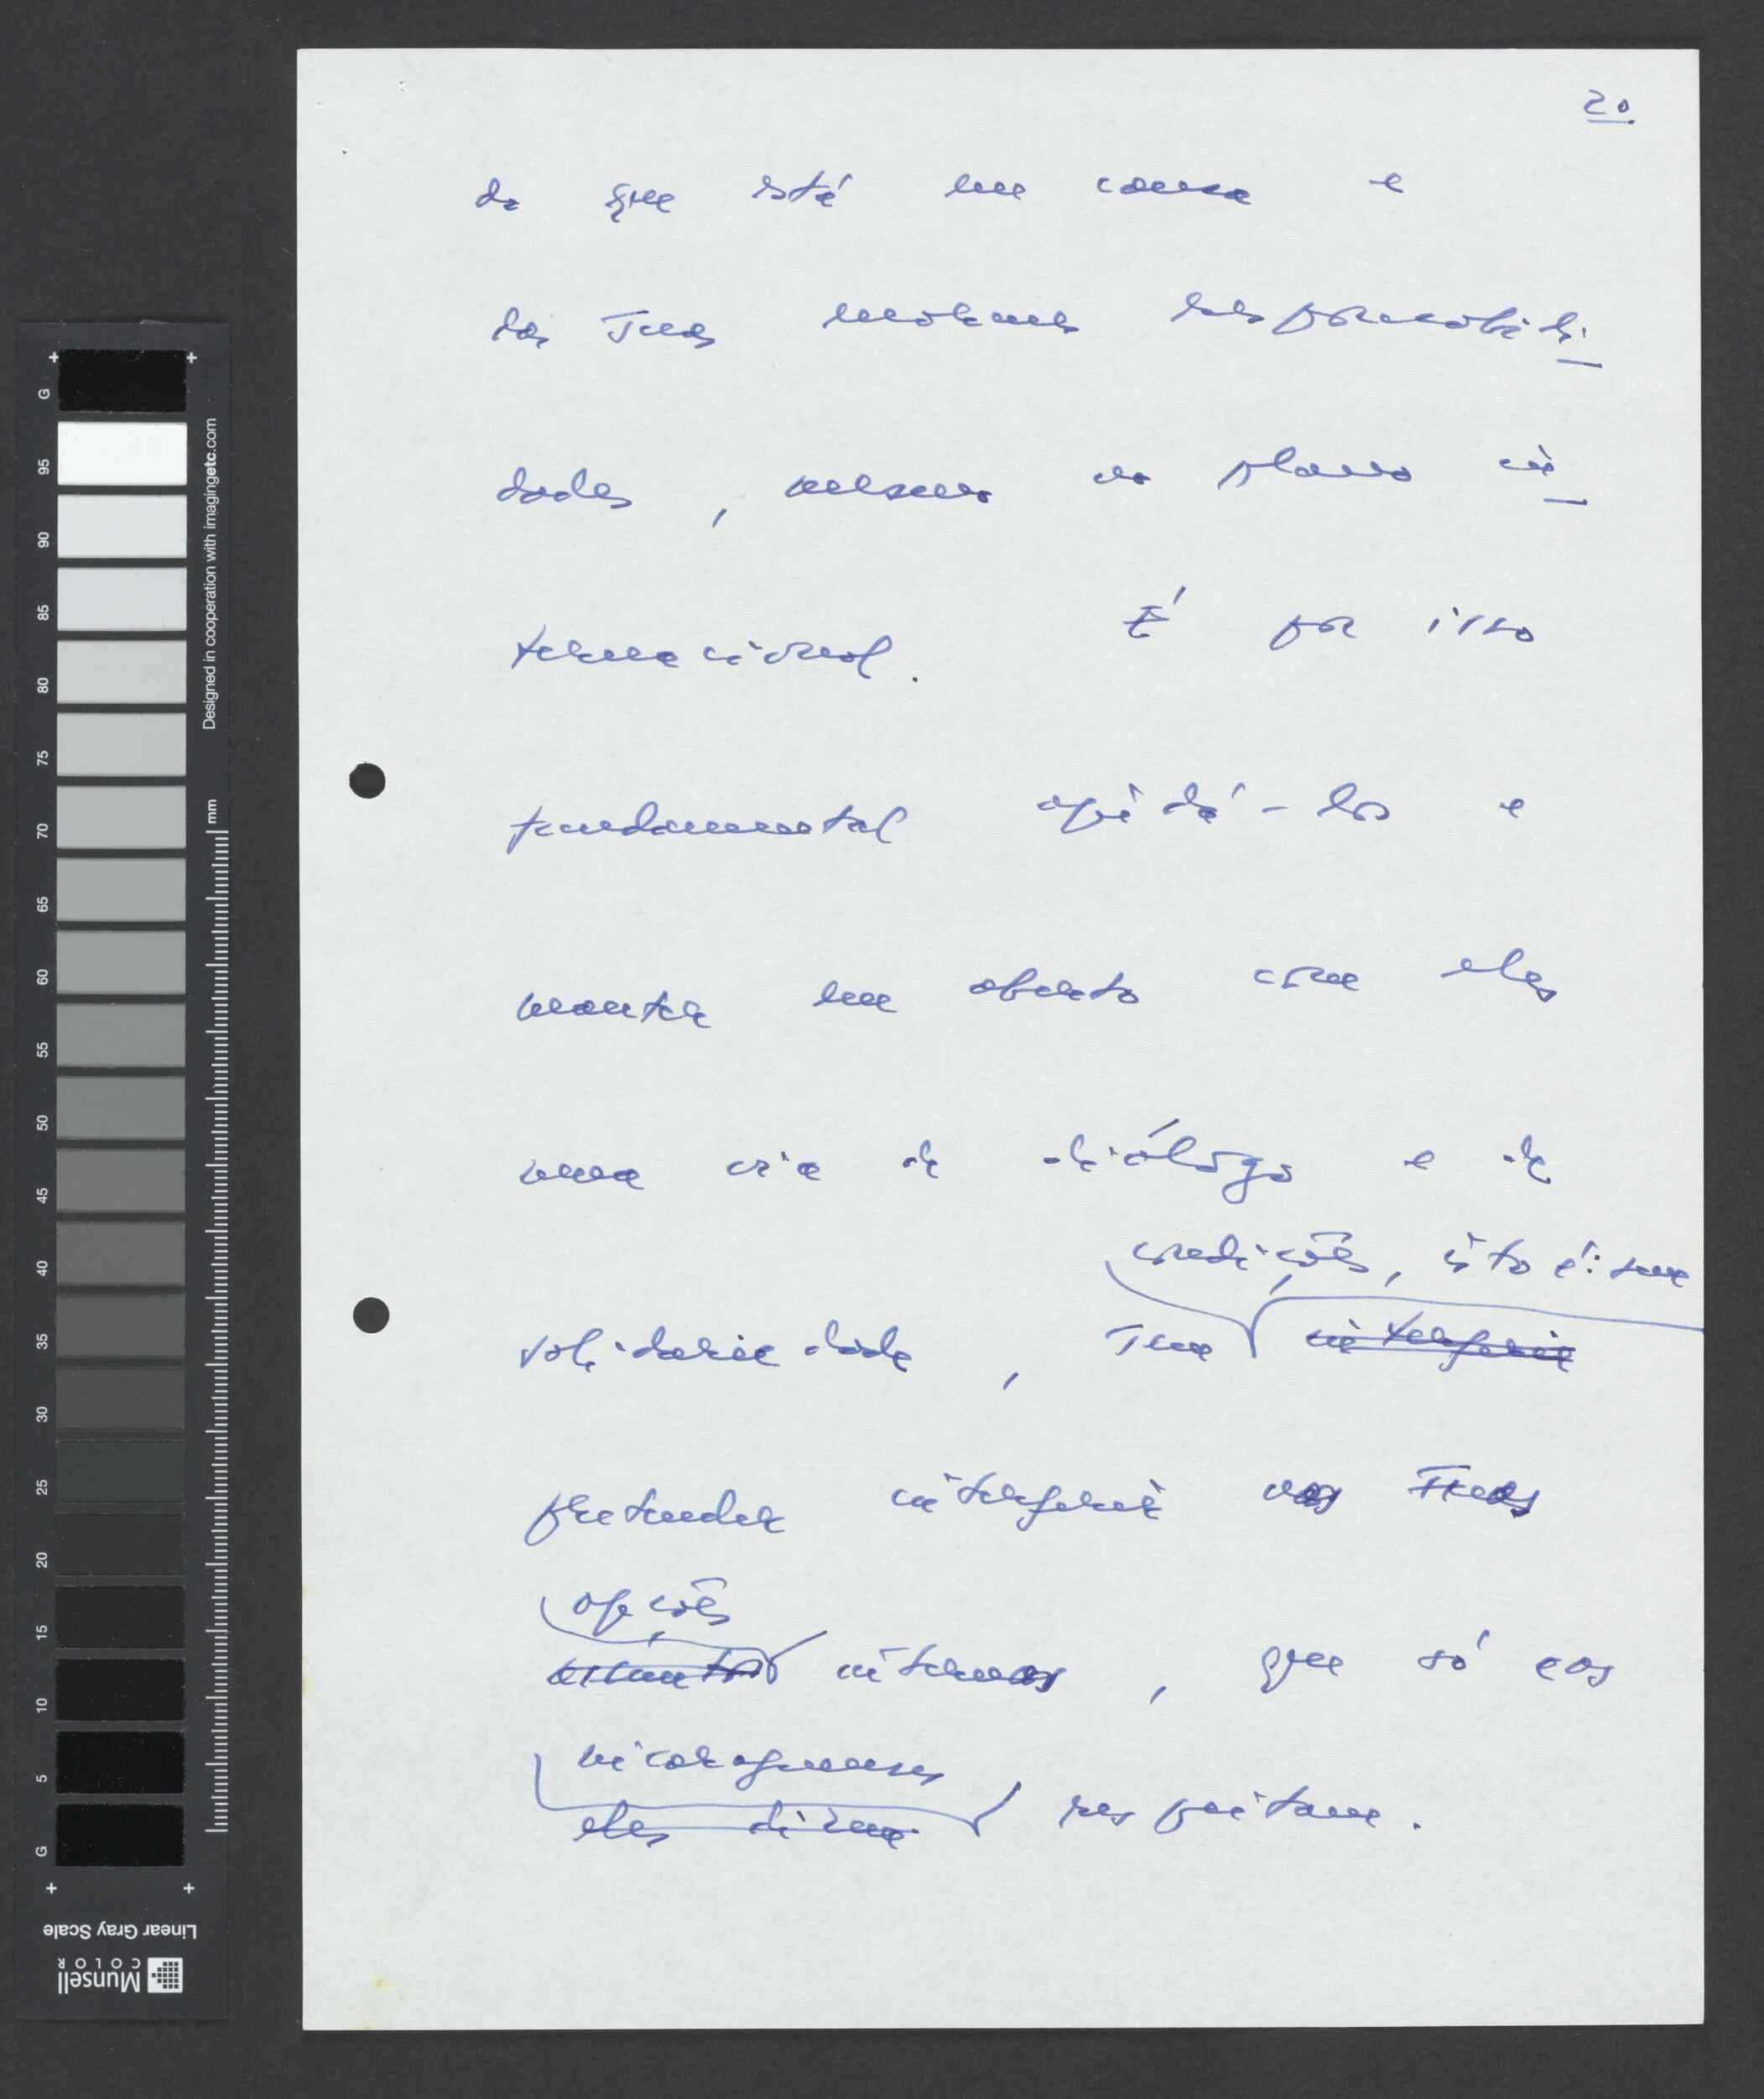 20
do que está em causa e
das suas mesmas responsabili-
dades, mesmo no plano in-
ternacional. É por isso
fundamental ajudá-los e
manter em aberto com eles
uma via de diálogo e de
condições, isto é: sem
solidariedade, sem interferir
pretender interferir nas suas
opções
assuntos internas, que só aos
nicaraguenses
eles dizem respeitam.
G
95
90
85
80
75
70
65
60
55
50
45
40
35
30
25
20
15
10
5
G
Designed in cooperation with imagingetc.com
mm
Linear Gray Scale
Munsell
COLOR